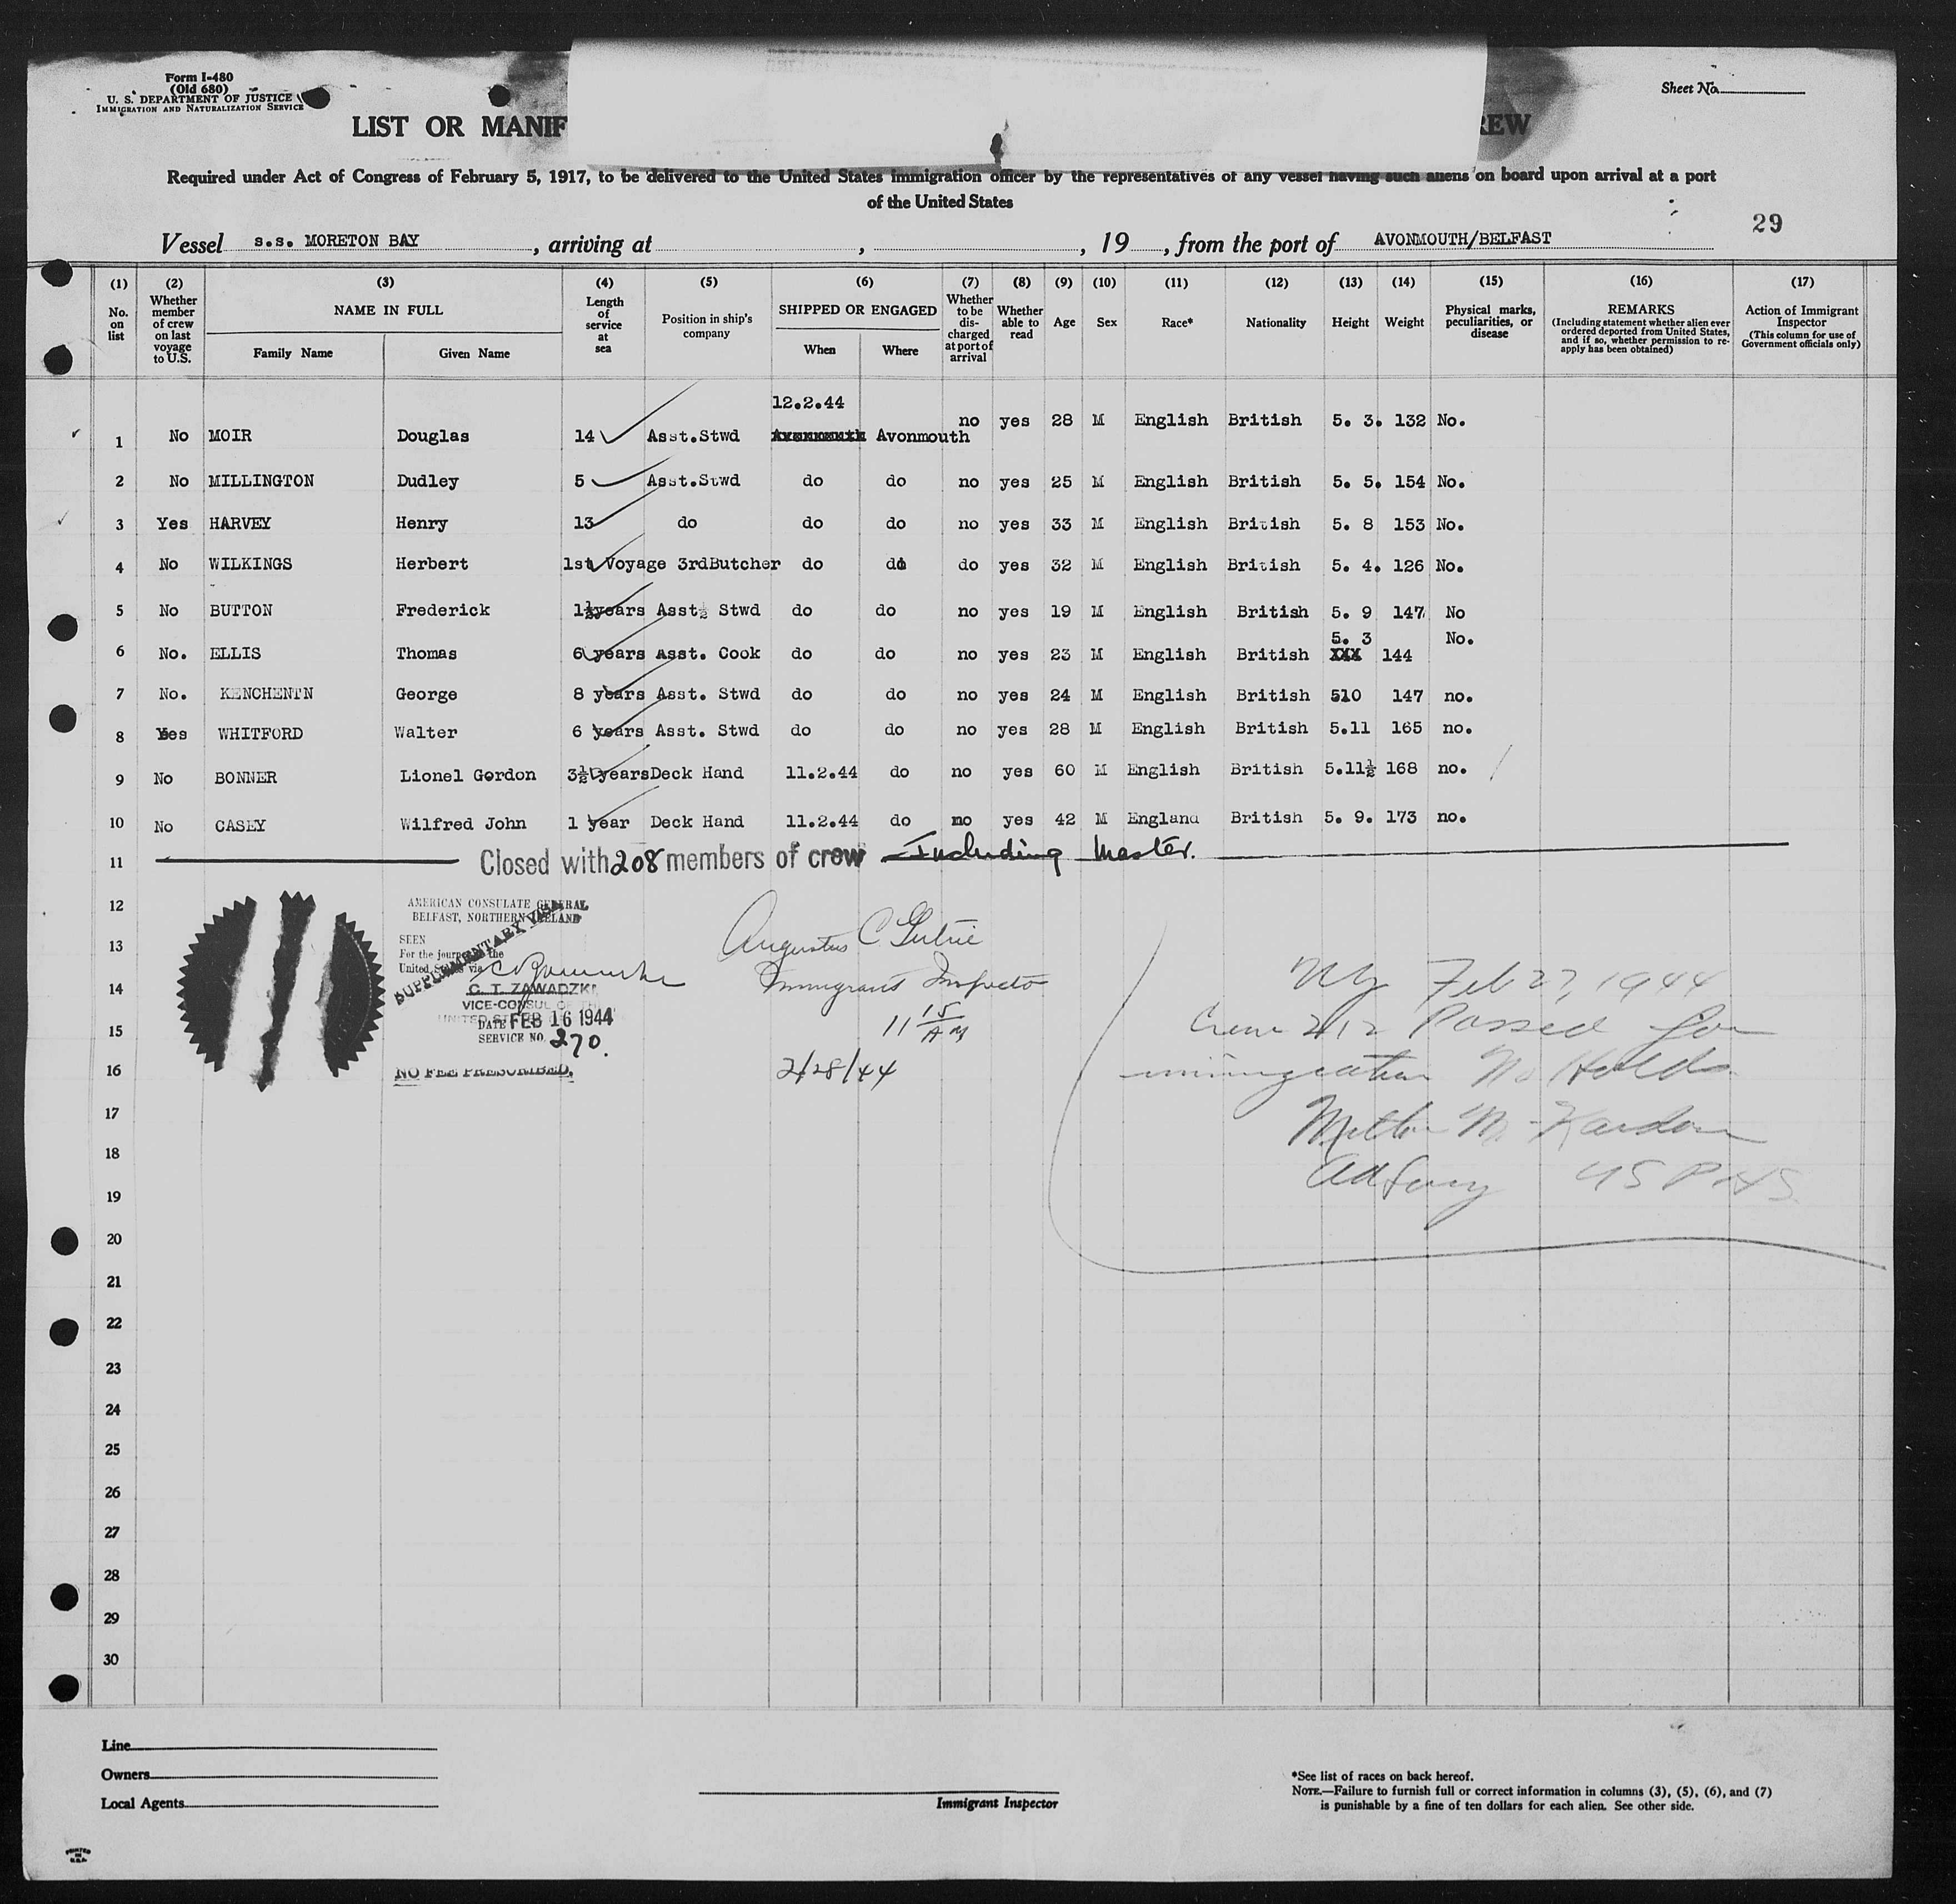 Form I-480
(Old 680)
U. S. DEPARTMENT OF JUSTICE
IMMIGRATION AND NATURALIZATION SERVICE
Sheet No.
LIST OR MANIF
REW
Required under Act of Congress of February 5, 1917, to be delivered to the United States immigration officer by the representatives of any vessel having such aliens on board upon arrival at a port
of the United States
29
Vessel s.s. MORETON BAY , arriving at , , 19 , from the port of AVONMOUTH/BELFAST
(1) (2) (3) (4) (5) (6) (7) (8) (9) (10) (11) (12) (13) (14) (15) (16) (17)
No. on list
Whether member of crew on last voyage to U.S.
NAME IN FULL
Family Name Given Name
Length of service at sea
Position in ship's company
SHIPPED OR ENGAGED
When Where
Whether to be discharged at port of arrival
Whether able to read
Age
Sex
Race*
Nationality
Height
Weight
Physical marks, peculiarities, or disease
REMARKS
(Including statement whether alien ever ordered deported from United States, and if so, whether permission to re-apply has been obtained)
Action of Immigrant Inspector
(This column for use of Government officials only)
12.2.44
1 No MOIR Douglas 14 Asst.Stwd Avonmouth Avonmouth no yes 28 M English British 5. 3. 132 No.
2 No MILLINGTON Dudley 5 Asst.Stwd do do no yes 25 M English British 5. 5. 154 No.
3 Yes HARVEY Henry 13 do do do no yes 33 M English British 5. 8 153 No.
4 No WILKINGS Herbert 1st Voyage 3rdButcher do do do yes 32 M English British 5. 4. 126 No.
5 No BUTTON Frederick 1½years Asst. Stwd do do no yes 19 M English British 5. 9 147 No
5. 3 No.
6 No. ELLIS Thomas 6 years Asst. Cook do do no yes 23 M English British XXX 144
7 No. KENCHENTN George 8 years Asst. Stwd do do no yes 24 M English British 510 147 no.
8 Yes WHITFORD Walter 6 years Asst. Stwd do do no yes 28 M English British 5.11 165 no.
9 No BONNER Lionel Gordon 3½ years Deck Hand 11.2.44 do no yes 60 M English British 5.11½ 168 no.
10 No CASEY Wilfred John 1 year Deck Hand 11.2.44 do no yes 42 M England British 5. 9. 173 no.
11 Closed with 208 members of crew Including Master.
12
13
14
15
16
17
18
19
20
21
22
23
24
25
26
27
28
29
30
AMERICAN CONSULATE GENERAL
BELFAST, NORTHERN IRELAND
SEEN
For the journey to the
United States via
SUPPLEMENTARY VISA
C. T. ZAWADZKI
VICE-CONSUL OF THE
UNITED STATES
DATE FEB 16 1944
SERVICE NO. 270.
NO FEE PRESCRIBED.
Augustus C
Immigrant Inspector
11 15 AM
2/28/44
NY Feb 27, 1944
Crew 212 Passed for
immigration No Holds
USPHS
Line
Owners
Local Agents
Immigrant Inspector
*See list of races on back hereof.
NOTE.—Failure to furnish full or correct information in columns (3), (5), (6), and (7)
is punishable by a fine of ten dollars for each alien. See other side.
PRINTED
IN
U.S.A.